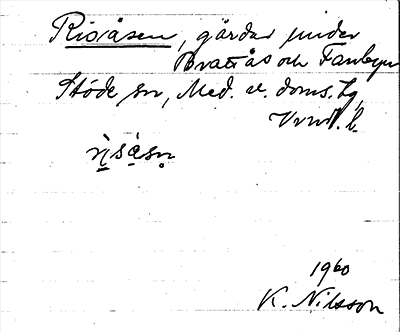 Risåsen, gårdar under
Brattås och Fanbyn
Stöde sn, Med. v. doms. tg,
Vrnl. l.
1960
K. Nilsson